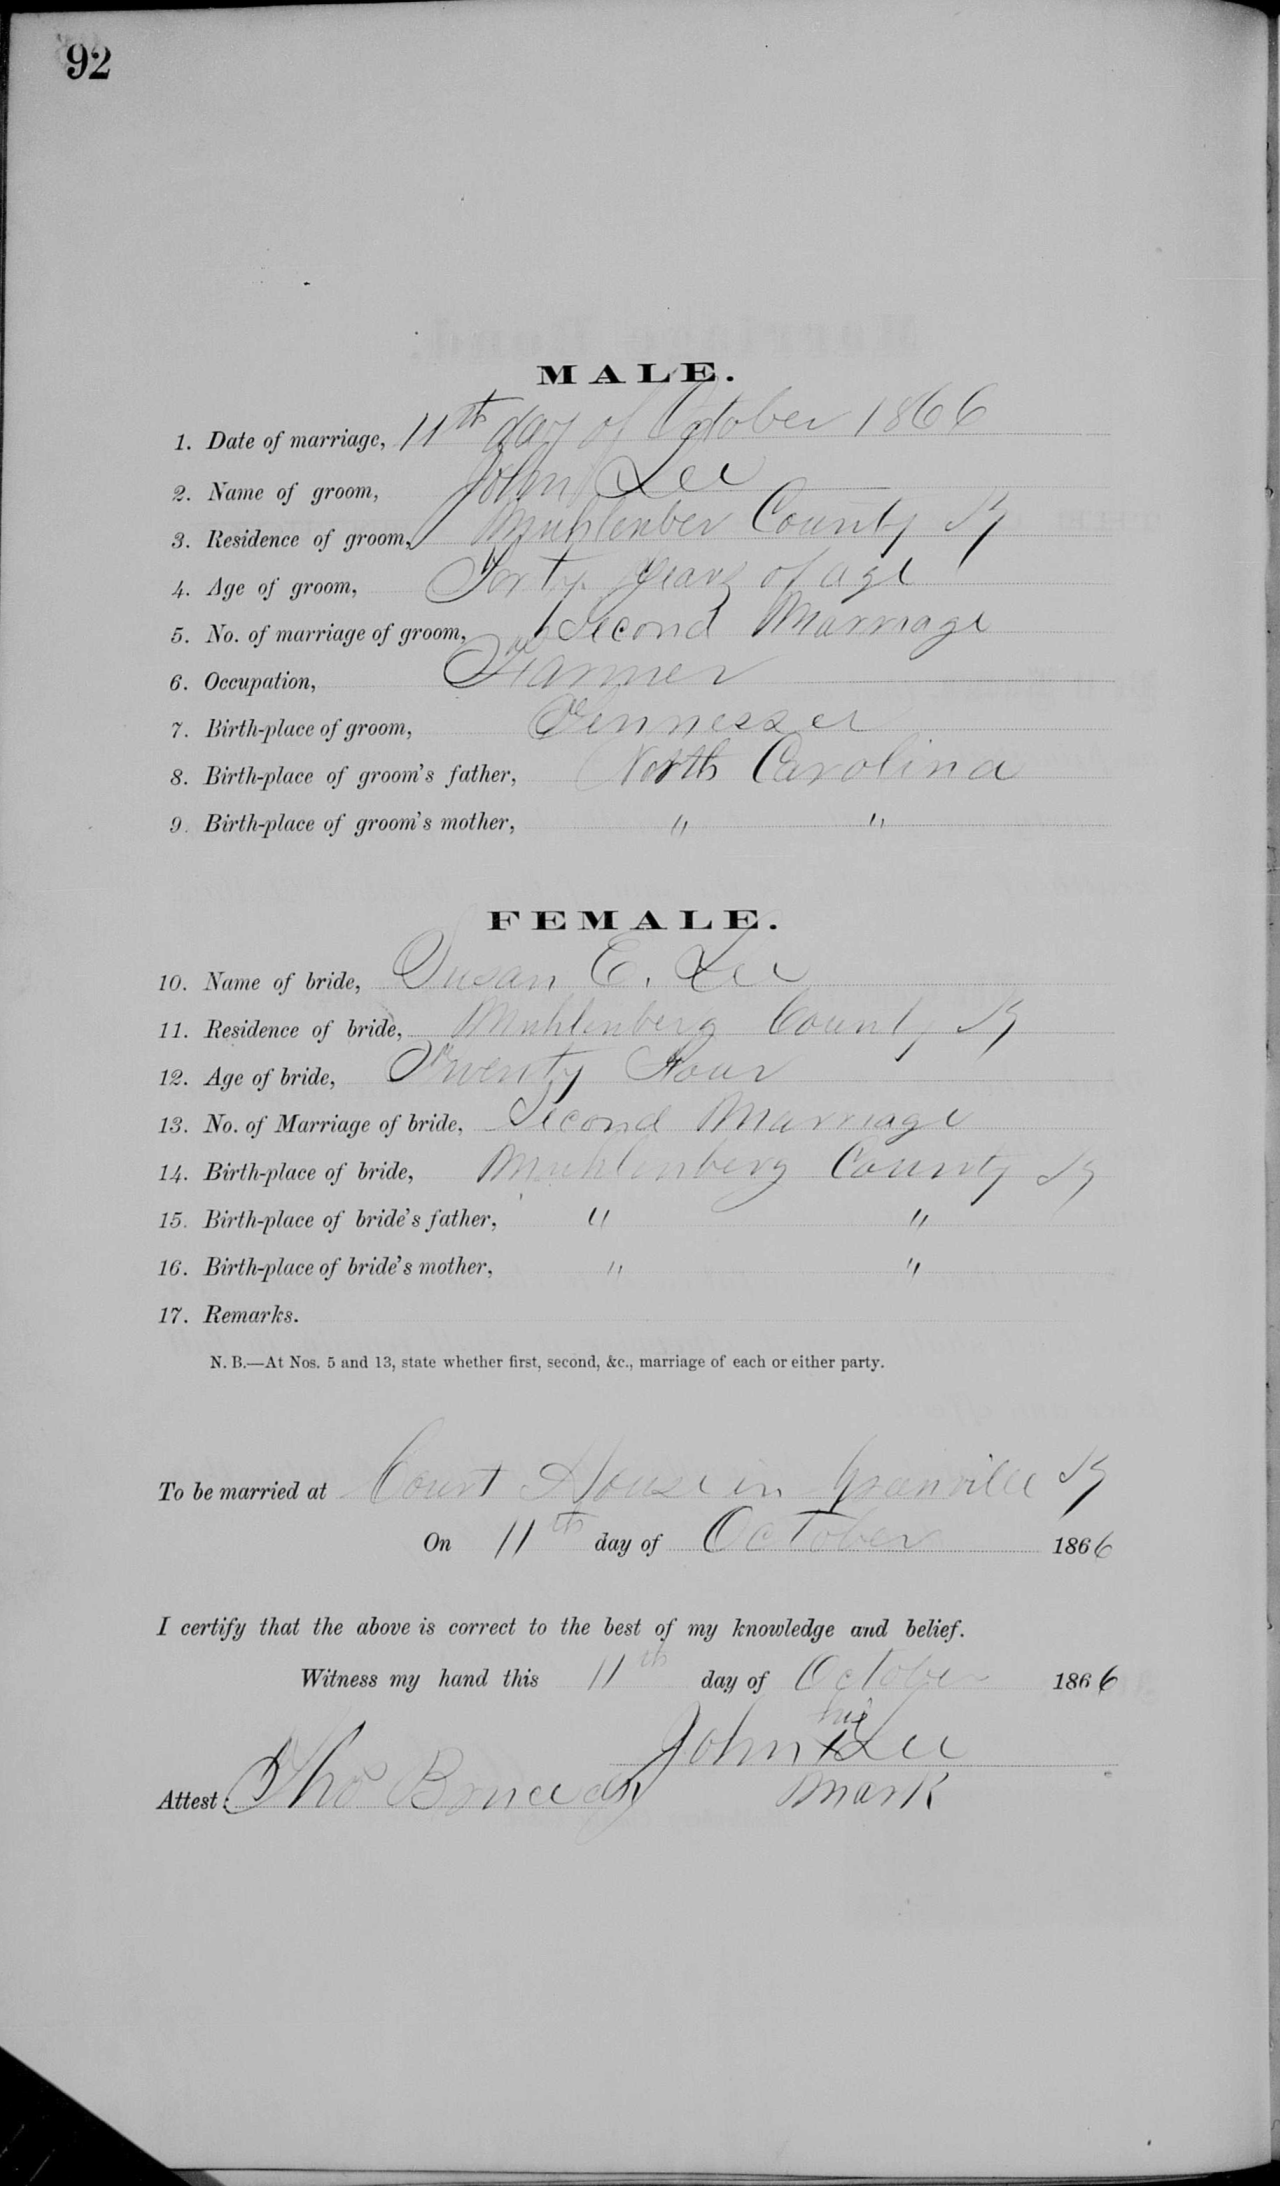 92
MALE.
1. Date of marriage, 11th day of October 1866
2. Name of groom, John Lee
3. Residence of groom, Muhlenber County Ky
4. Age of groom, Forty years of age
5. No. of marriage of groom, Second Marriage
6. Occupation, Farmer
7. Birth-place of groom, Tennessee
8. Birth-place of groom's father, North Carolina
9. Birth-place of groom's mother, " "
FEMALE.
10. Name of bride, Susan E. Lee
11. Residence of bride, Muhlenberg County Ky
12. Age of bride, Twenty Four
13. No. of Marriage of bride, Second Marriage
14. Birth-place of bride, Muhlenberg County Ky
15. Birth-place of bride's father, " "
16. Birth-place of bride's mother, " "
17. Remarks.
N. B.—At Nos. 5 and 13, state whether first, second, &c., marriage of each or either party.
To be married at Court House in Greenville Ky
On 11th day of October 1866
I certify that the above is correct to the best of my knowledge and belief.
Witness my hand this 11th day of October 1866
his
John X Lee
Attest: Thos Bruce mark